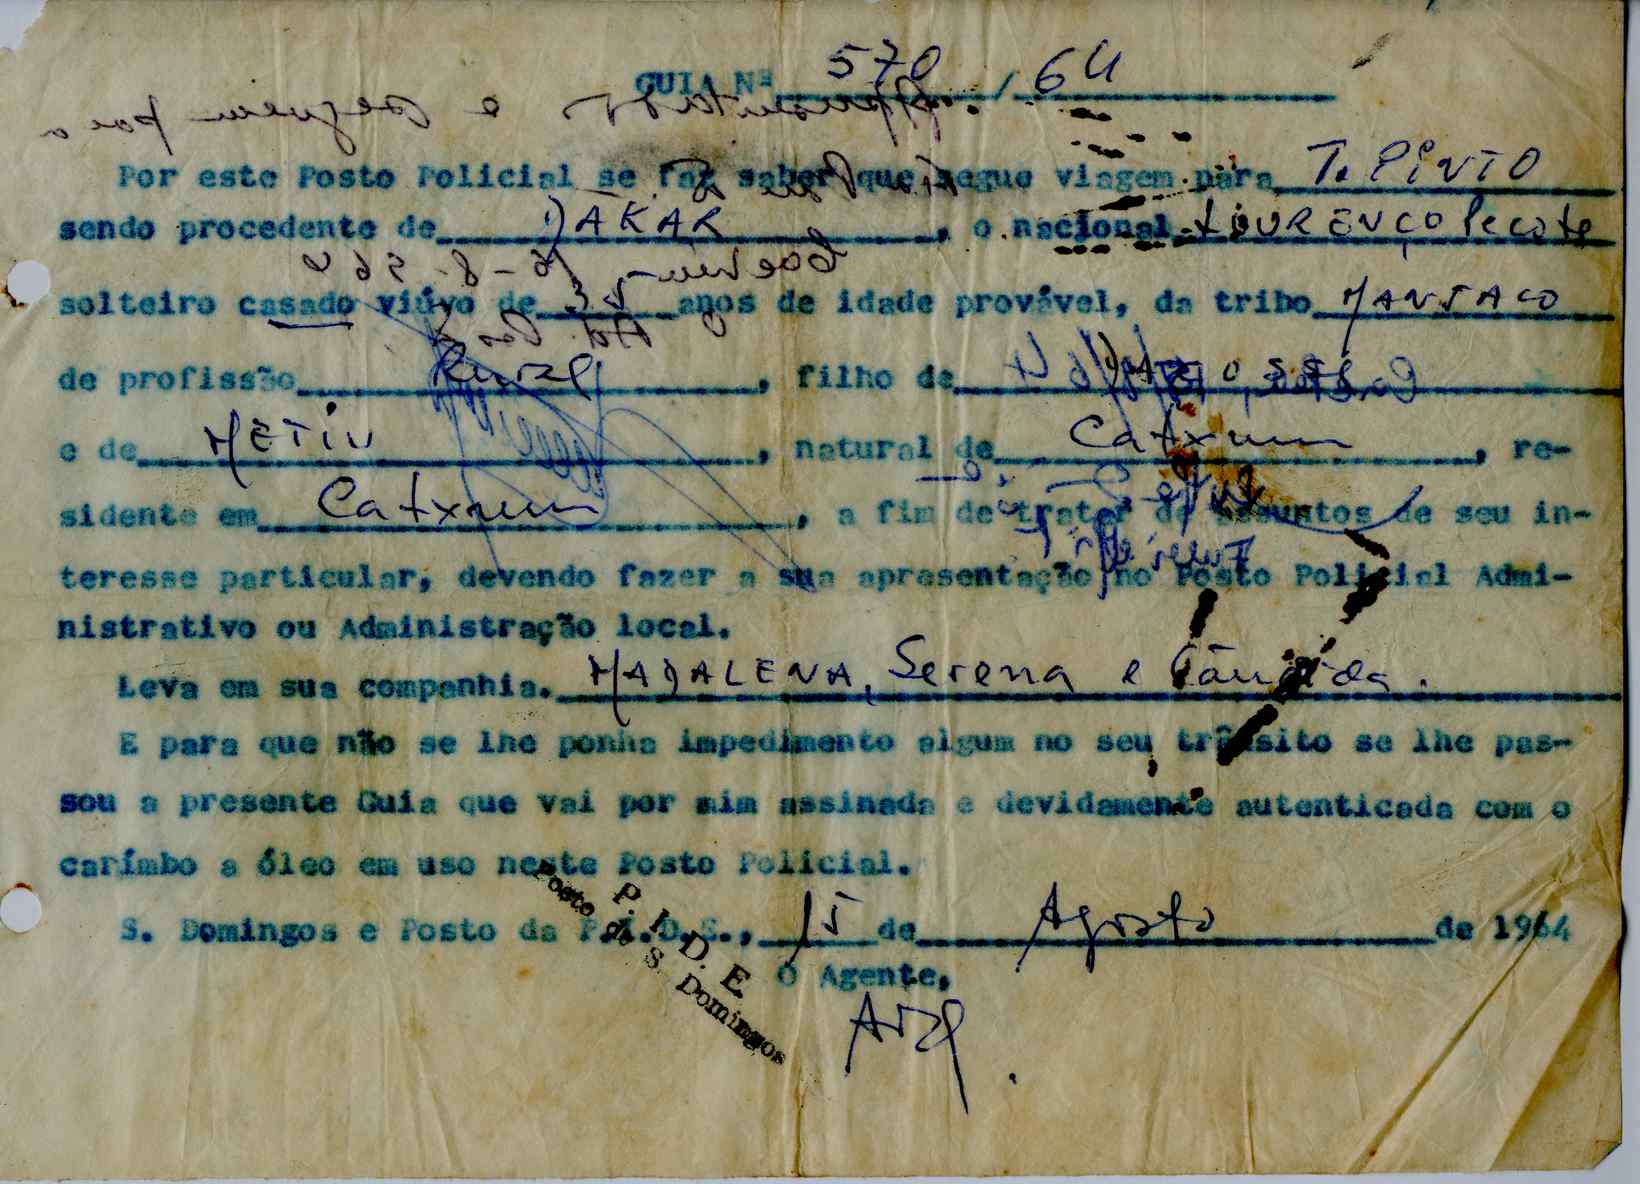 GUIA Nº 570 / 64
Por este Posto Policial se faz saber que segue viagem para T. PINTO
sendo procedente de DAKAR, o nacional LOURENÇO Pecote
solteiro casado viúvo de anos de idade provável, da tribo MANJACO
de profissão Rural, filho de
e de METIU, natural de Catxum, re-
sidente em Catxum, a fim de tratar de assuntos de seu in-
teresse particular, devendo fazer a sua apresentação no Posto Policial Admi-
nistrativo ou Administração local.
Leva em sua companhia. MADALENA, Serena e Cândida.
E para que não se lhe ponha impedimento algum no seu trânsito se lhe pas-
sou a presente Guia que vai por mim assinada e devidamente autenticada com o
carímbo a óleo em uso neste Posto Policial.
P. I. D. E.
Posto de S. Domingos
S. Domingos e Posto da P.I.D.E., 15 de Agosto de 1964
O Agente,